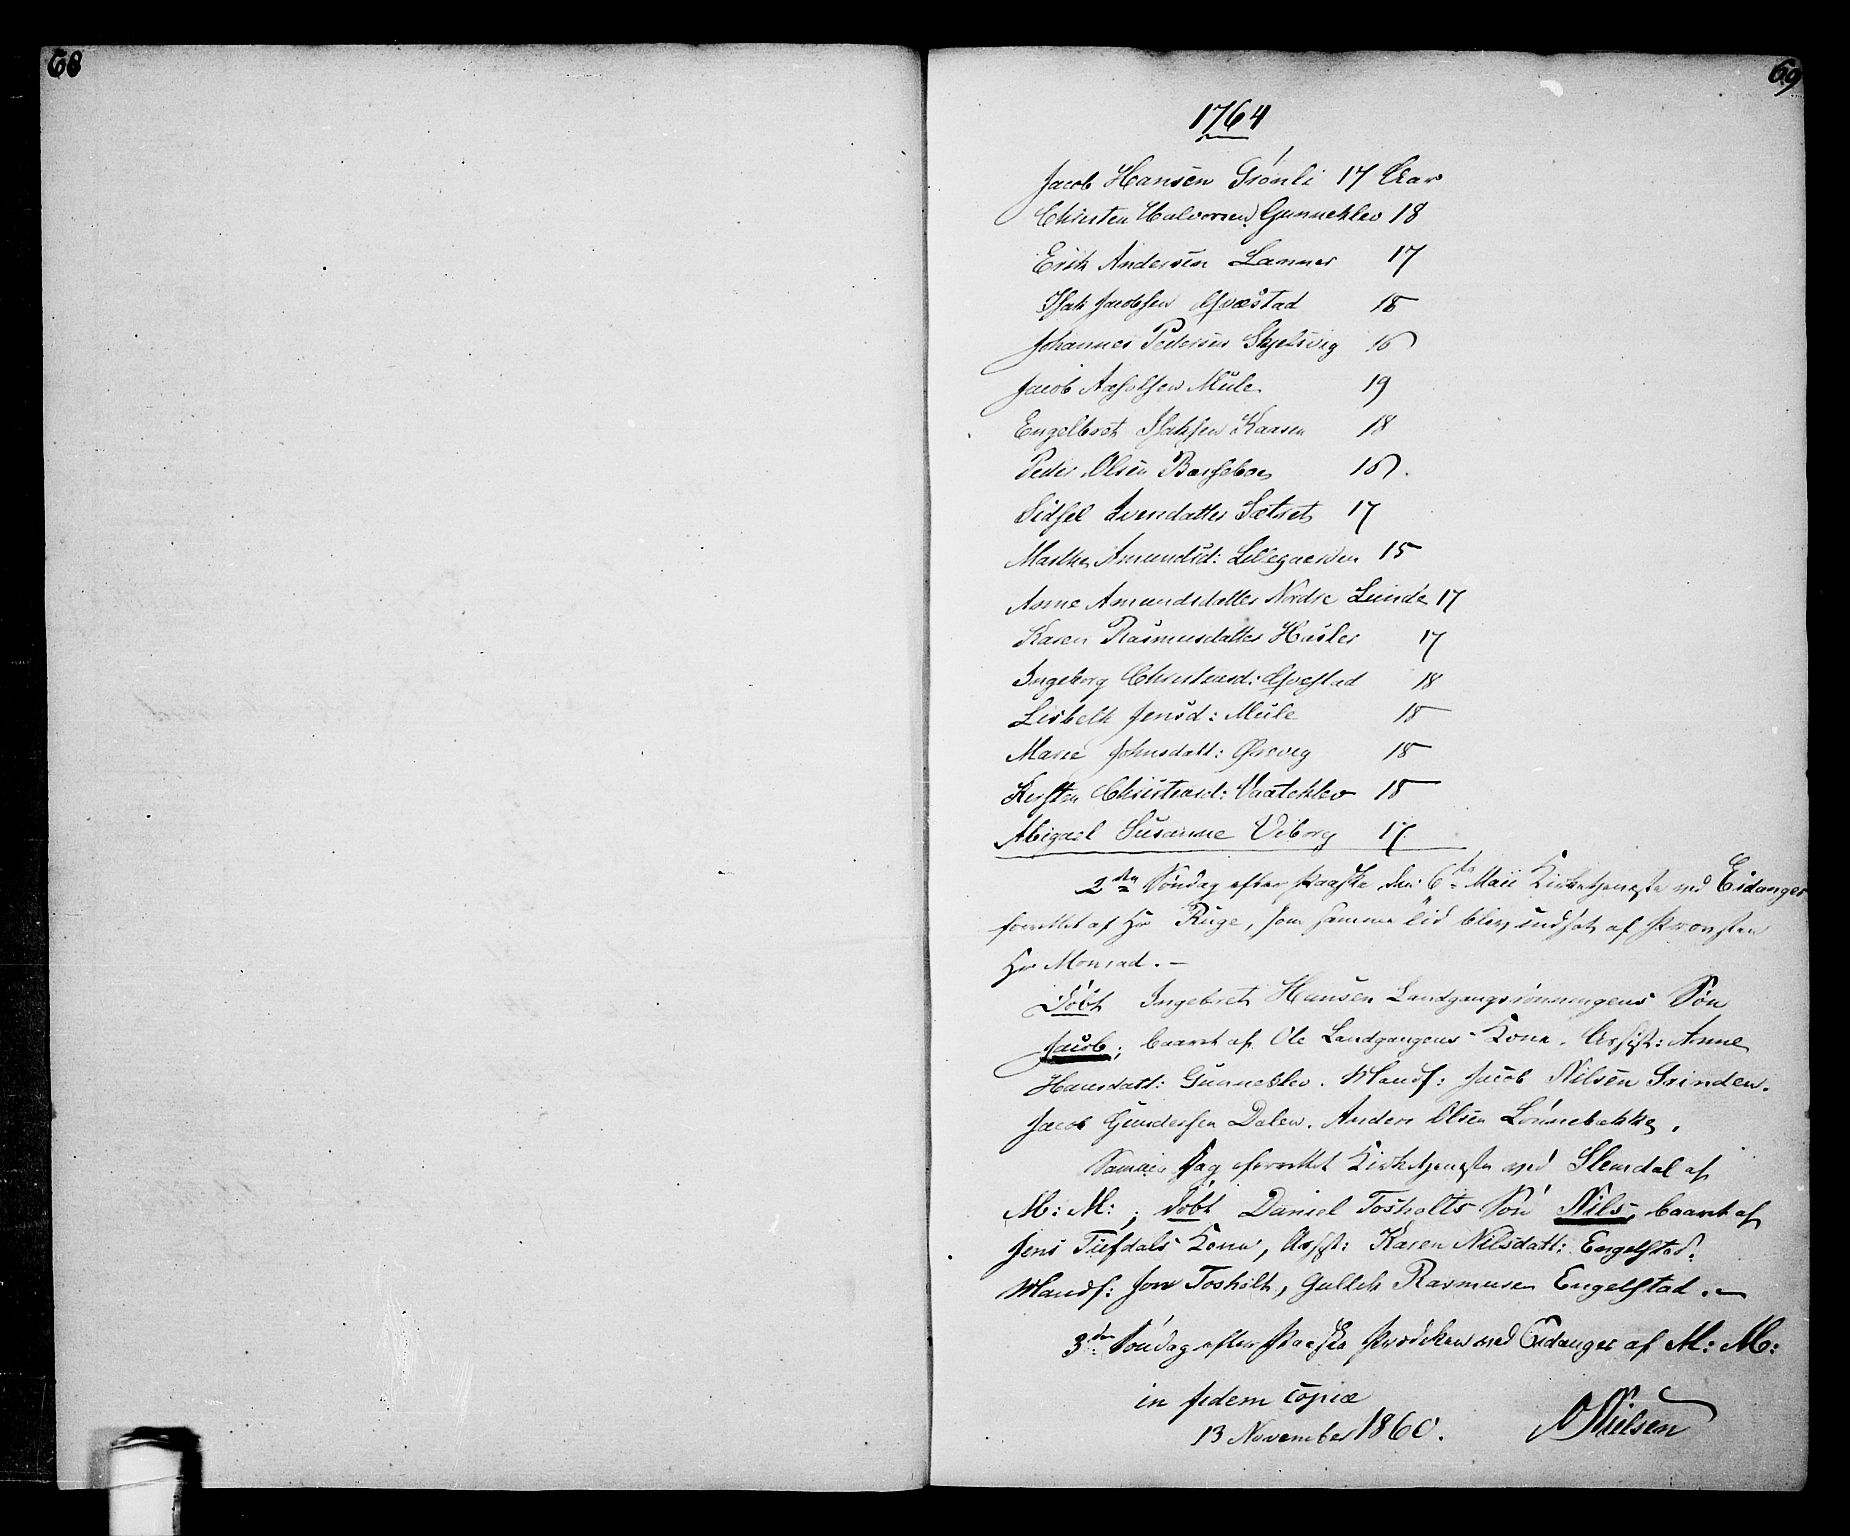 68
69
1764
Jacob Hansen Grönli 17 Aar
Christen Halvorsen Gunneklev 18
Erik Andersen Lanner 17
Isak Jacobsen Qvæstad 18
Johannes Pedersen Skjelsvig 16
Jacob Axelsen Mule 19
Engelbret Isaksen Kaasen 18
Peder Olsen 16.
Sidsel Svendatter Sætret 17
Marthe Amundsd: Lillegaarden 15
Anne Amundsdatter Nordre Lunde 17
Karen Rasmusdatter 17
Ingeborg Christensd: Qvestad 18
Lisbeth Jensd: Mule 18
Maree Johnsdatt: Ørevig 18
Kirsten Christensd: 18
Abigael Susanne Viborg 17.
2den Söndag efter Paaske den 6te Maii Kirketjeneste ved Eidanger
forrettet af Hr Ruge, som samme Tid blev indsat af Provsten
Hr Monrad. –
Döbt Ingebret Hansen Landgangsrönningens Sön
Jacob; baaret af Ole Landgangens Kone. Assist: Anne
Hansdatt: Gunneklev. Mandf: Jacob Nilsen Grinden.
Jacob Gundersen Dalen. Anders Olsen Lönnebakke.
Samme Dag forrettet Kirketjeneste ved Slemdal af
M: M: ; Döbt Daniel Tosholts Sön Nils; baaret af
Jens Tiefdals Kone, Assist: Karen Nilsdatt: Engelstad.
Mandf: Jon Tosholt, Gullik Rasmusen Engelstad. –
3die Söndag efter Paaske Prædiken ved Eidanger af M: M:
in fidem copiæ
13 November 1860. Nielsen